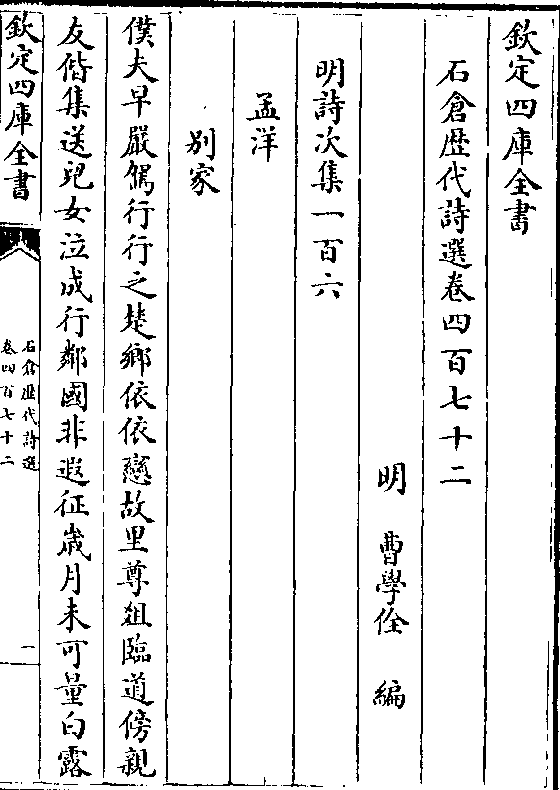 欽定四庫全書
石倉歴代詩選卷四百七十二
明 曹學佺 編
明詩次集一百六
孟洋
别家
僕夫早嚴駕行行之楚鄉依依戀故里尊俎臨道傍親
友偕集送兒女泣成行鄰國非遐征歲月未可量白露
欽定四庫全書
石倉歴代詩選
卷四百七十二
一